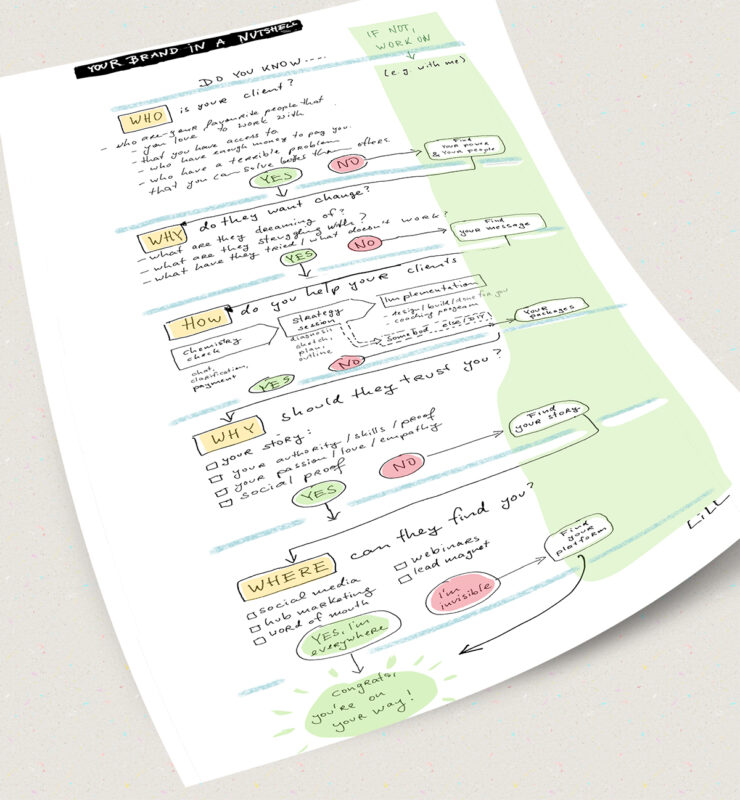 YOUR BRAND IN A NUTSHELL
IF NOT,
WORK ON
(e.g. with me)
DO YOU KNOW....
WHO is your client?
- who are your favourite people that
- you love to work with
- that you have access to
- who have enough money to pay you
- who have a terrible problem
that you can solve better than others
YES
NO
Find
your power
& your people
WHY do they want change?
- what are they dreaming of?
- what are they struggling with?
- what have they tried / what doesn't work?
YES
NO
Find
your message
HOW do you help your clients
Chemistry
check
chat,
clarification,
payment
strategy
session
diagnosis
sketch,
plan,
outline
Implementation
- design / build / done for you
- coaching program
somebody else / DIY
YES
NO
Your
packages
WHY should they trust you?
your story:
your authority / skills / proof
your passion / love / empathy
social proof
YES
NO
Find
your story
WHERE can they find you?
social media
hub marketing
word of mouth
webinars
lead magnet
YES, I'm
everywhere
I'm
invisible
Find
your
platform
LILL
Congrats,
you're on
your way!